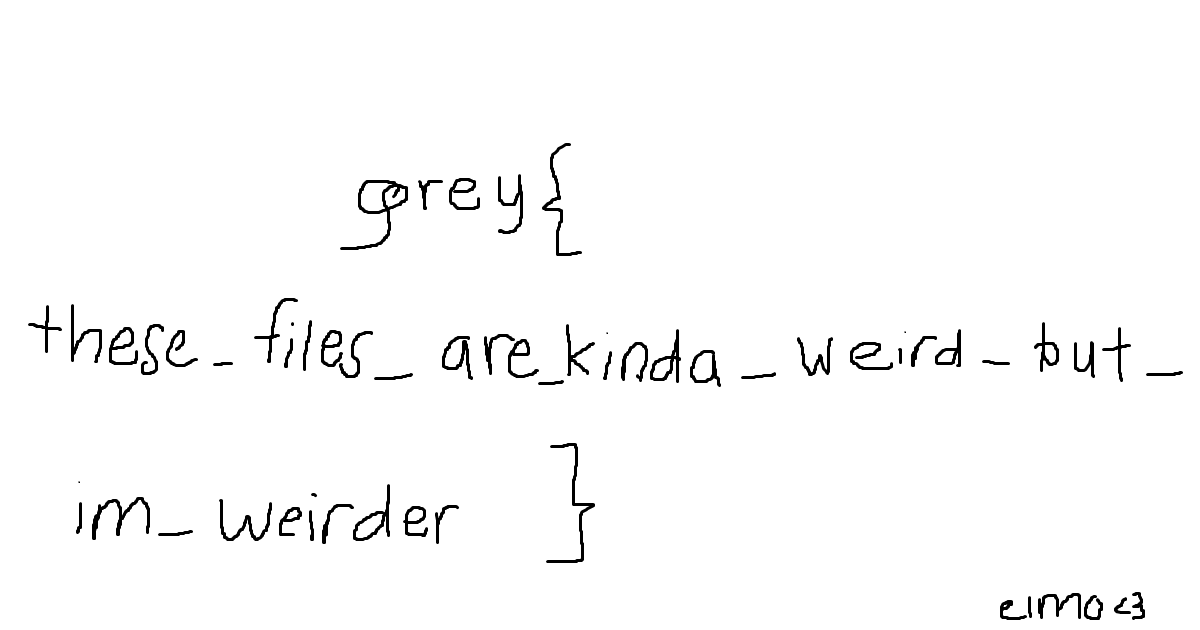 grey{
these_files_are_kinda_weird_but_
im_weirder }
elmo<3